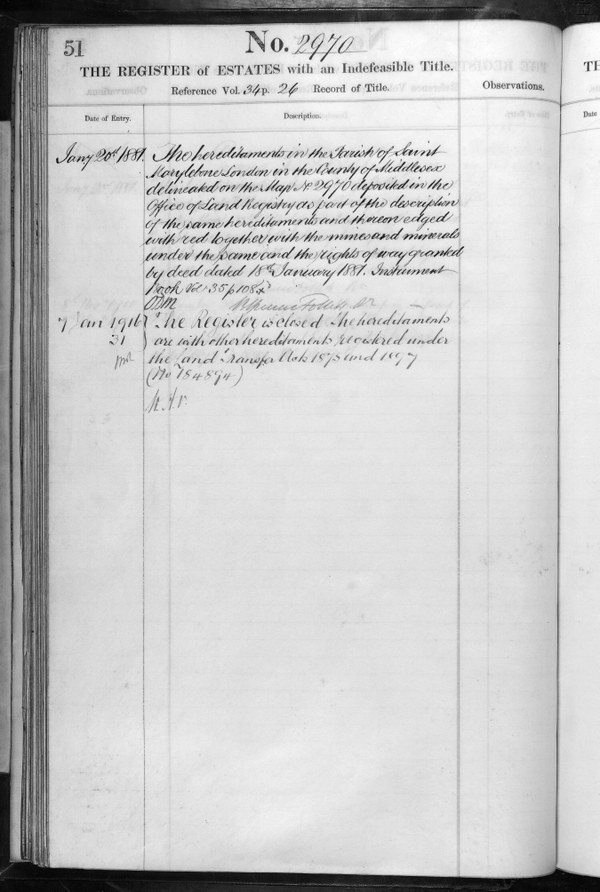 51
No. 2970
THE REGISTER of ESTATES with an Indefeasible Title.
Reference Vol. 34 p. 26 Record of Title.
Observations.
Date of Entry.
Description.
Jany 20th 1881. The hereditaments in the Parish of Saint
Marylebone London in the County of Middlesex
delineated on the Map No 2970 deposited in the
Office of Land Registry as part of the description
of the same hereditaments and thereon edged
with red together with the mines and minerals
under the same and the rights of way granted
by deed dated 18th January 1881. Instrument
Book Vol 35 p 108
7 Jan 1916 The Register is closed The hereditaments
31 are with other hereditaments registered under
the Land Transfer Acts 1875 and 1897
(No 184894)
TH
Date